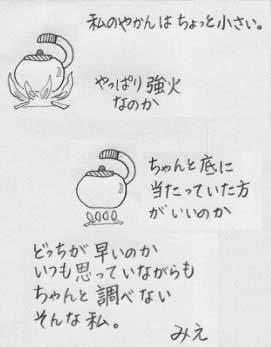 私のやかんはちょっと小さい。
やっぱり強火
なのか
ちゃんと底に
当たっていた方
がいいのか
どっちが早いのか
いつも思っていながらも
ちゃんと調べない
そんな私。
みえ